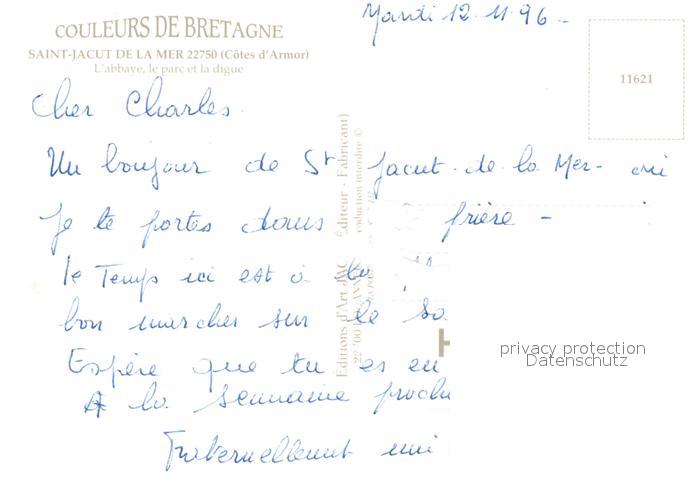 COULEURS DE BRETAGNE
SAINT-JACUT DE LA MER 22750 (Côtes d'Armor)
L'abbaye, le parc et la digue
Mardi 12.11.96 -
11621
Cher Charles
Un bonjour de St Jacut-de-la Mer- où
Je te portes dans prière -
le Temps ici est à la
bon marcher sur le sa
Espère que tu es en
A la semaine proch
Fraternellement uni
Editions d'Art JAC Éditeur - Fabricant)
roduction interdite ©
privacy protection
Datenschutz